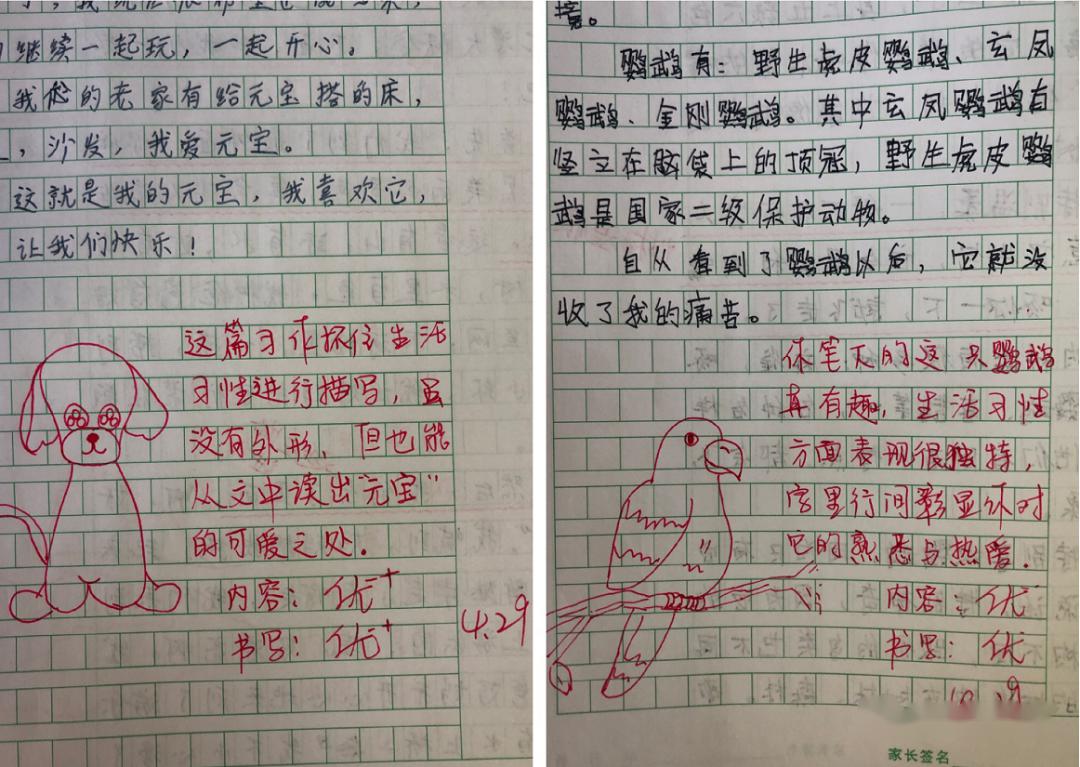 继续一起玩，一起开心。
我爸的老家有给元宝搭的床，
，沙发，我爱元宝。
这就是我的元宝，我喜欢它，
让我们快乐！
这篇习作抓住生活
习性进行描写，虽
没有外形，但也能
从文中读出“元宝”
的可爱之处.
内容：优+
书写：优+
4.29
境。
鹦鹉有：野生虎皮鹦鹉、玄凤
鹦鹉、金刚鹦鹉。其中玄凤鹦鹉有
竖立在脑袋上的顶冠，野生虎皮鹦
鹉是国家二级保护动物。
自从看到了鹦鹉以后，它就没
收了我的痛苦。
你笔下的这只鹦鹉
真有趣，生活习性
方面表现很独特，
字里行间彰显你对
它的熟悉与热爱.
内容：优
书写：优
家长签名